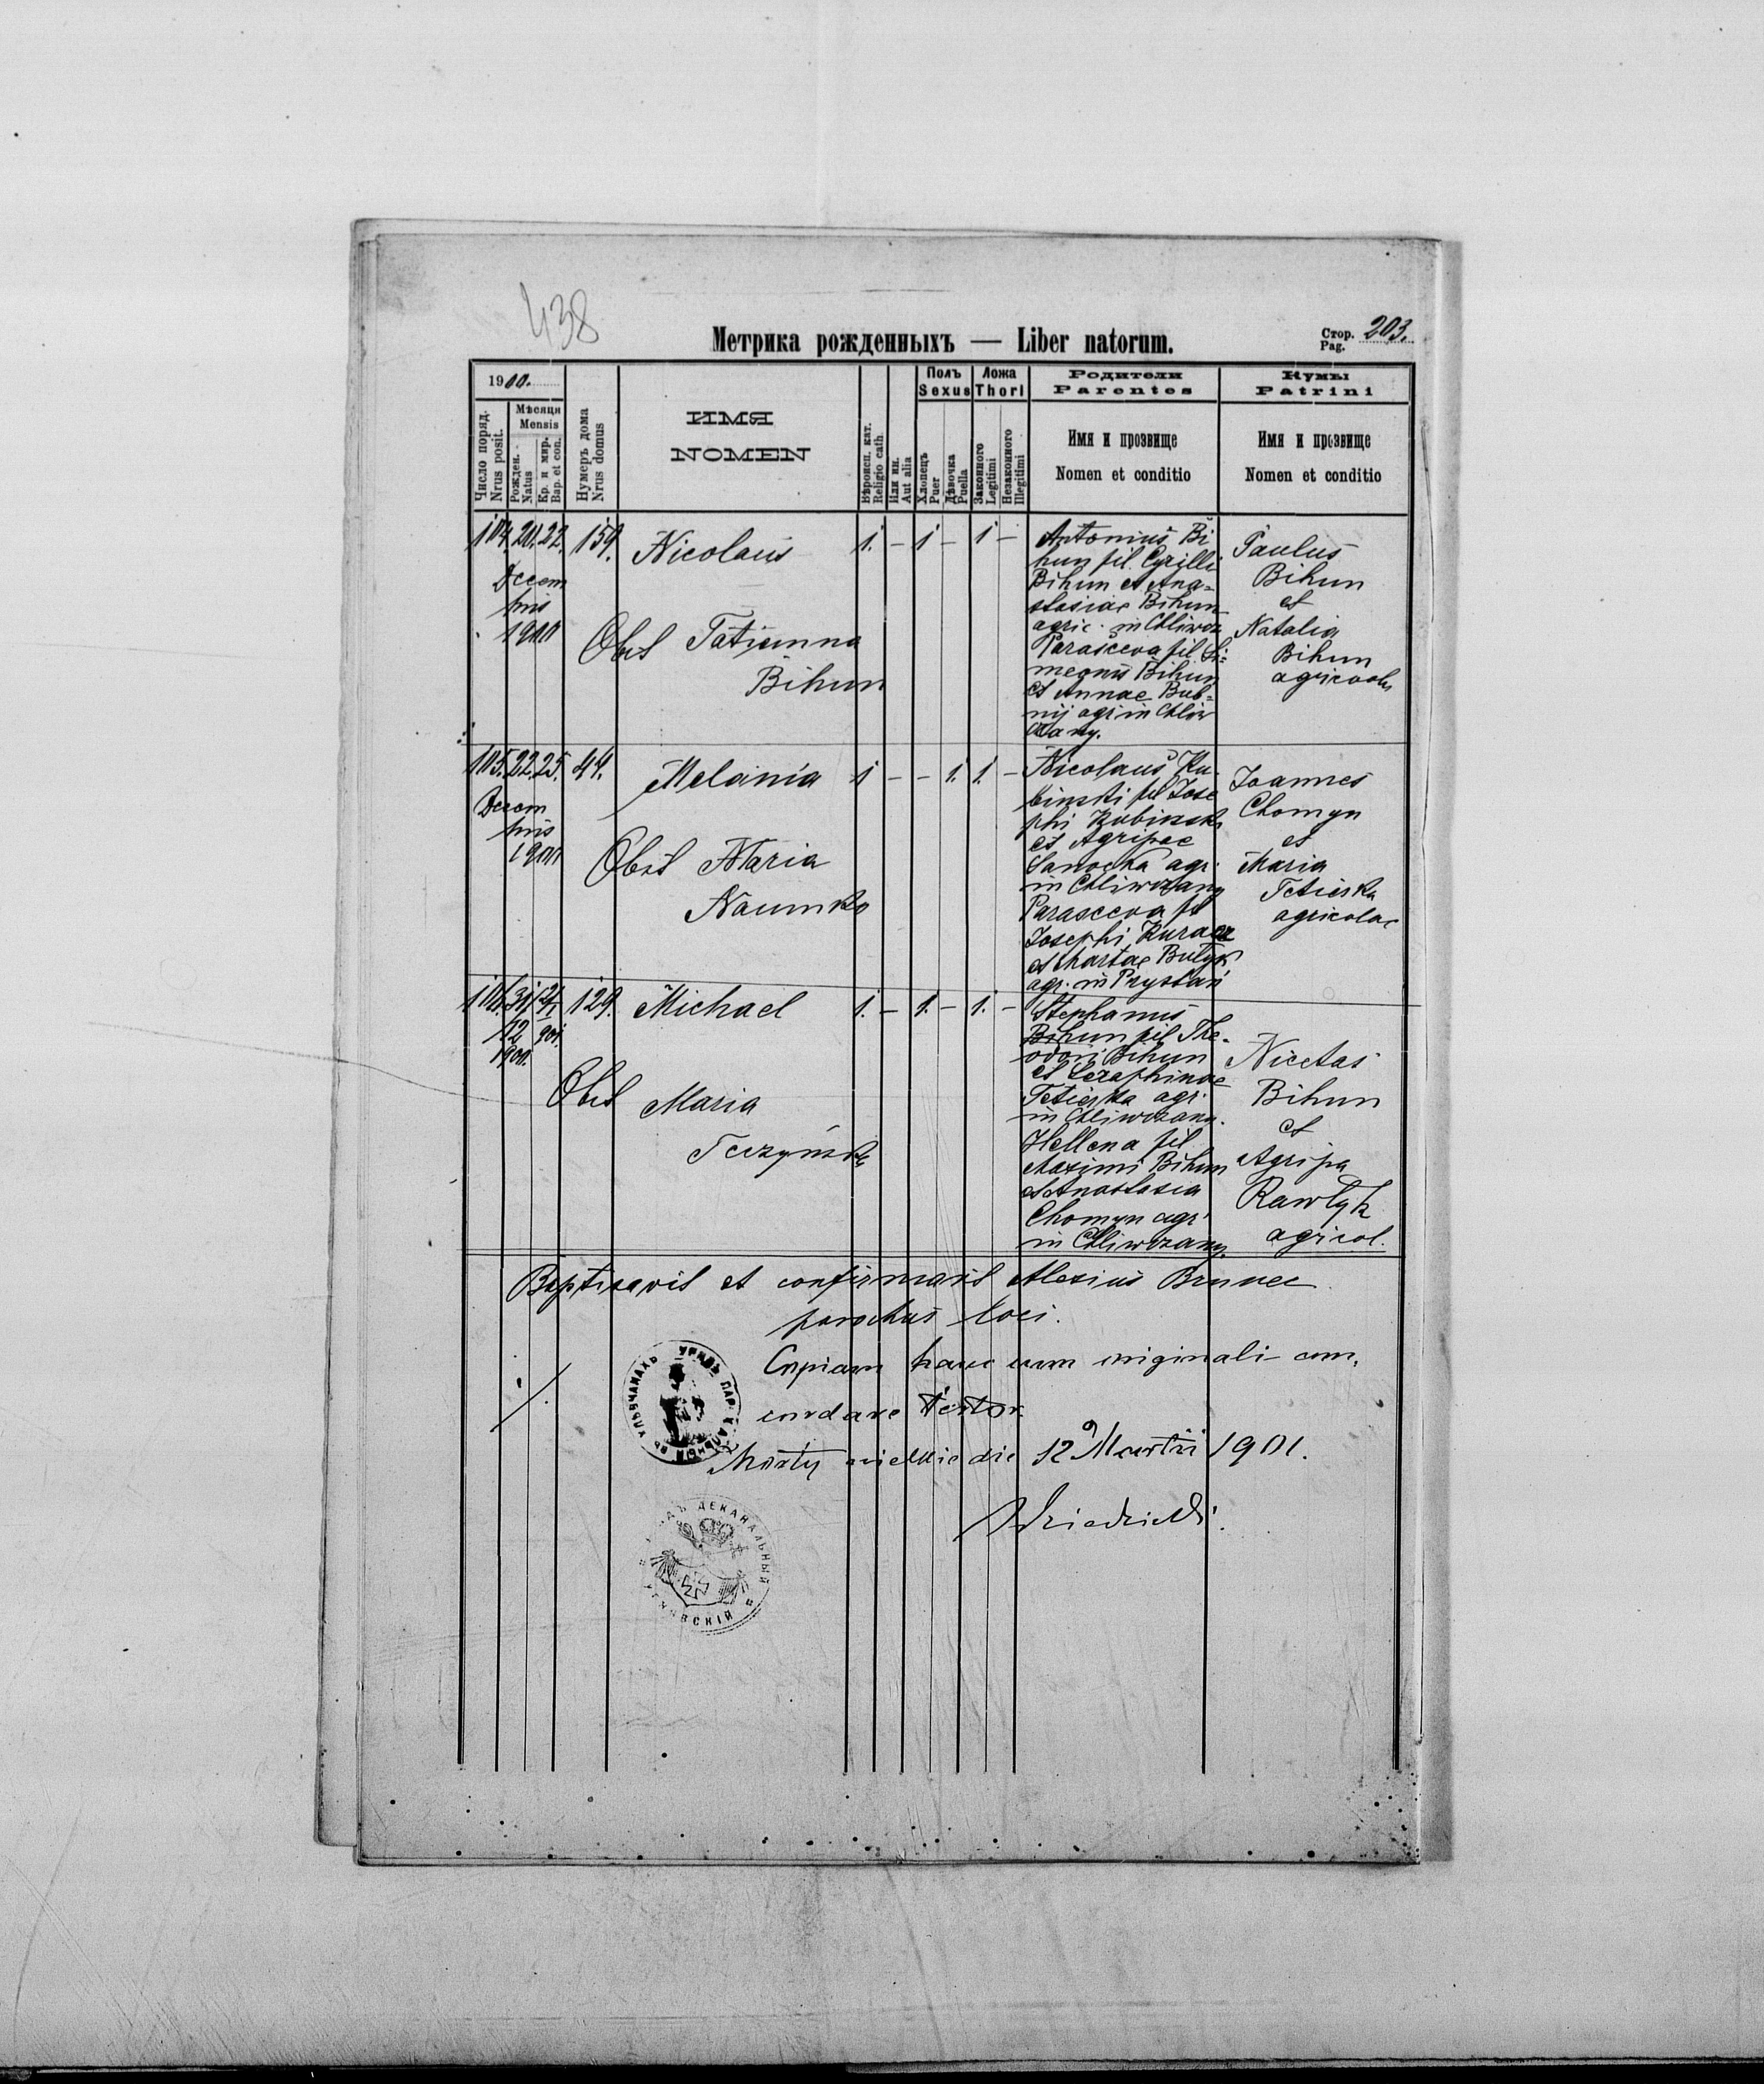 438
Метрика рожденныхъ — Liber natorum.
Стор. Pag. 203.
1900.
Число поряд. Nrus posit.
Мѣсяця Mensis
Рожден. Natus
Кр. и мир. Bap. et con.
Нумеръ дома Nrus domus
ИМЯ
NOMEN
Вѣроисп. кат. Religio cath.
Или ин. Aut alia
Полъ Sexus
Хлопецъ Puer
Дѣвочка Puella
Ложа Thori
Законного Legitimi
Незаконного Illegitimi
Родители
Parentes
Имя и прозвище
Nomen et conditio
Кумы
Patrini
Имя и прозвище
Nomen et conditio
104. 20. 22. 159. Nicolaus 1. - 1 - 1 -
Decem
bris
1900
Obst Tatianna
Bihun
Antonius Bi
hun fil. Cyrilli
Bihun et Ana=
stasiae Bihun
agric. in Chliwcz
Parasceva fil Si=
meonis Bihun
et Annae Bub=
nij agr in Chliw
czany.
Paulus
Bihun
et
Natalia
Bihun
agricolae
105. 22. 25. 44. Melania 1 - - 1. 1. -
Decem
bris
1900
Obst Maria
Naumko
Nicolaus Ku
binski fil Jose
phi Kubinski
et Agripae
Sanocka agr.
in Chliwczany
Parasceva fil
Josephi Kuracz
et Martae Butyk
agr. in Prystań
Joannes
Chomyn
et
Maria
Teterska
agricolae
106. 31. 129. Michael 1. - 1. - 1. -
12 901.
1900.
Obst Maria
Stephanus
Bihun fil The=
odori Bihun
et Seraphinae
Teterska agr.
in Chliwczany.
Hellena fil
Maximi Bihun
et Anastasia
Chomyn agr.
in Chliwczany.
Nicetas
Bihun
et
Agripa
Rawlyk
agricol.
Baptisavit et confirmavit Alexius Brunec
parochus loci.
Copiam hanc cum originali con=
cordare testor.
Mosty wielkie die 12 Martii 1901.
УРЯДЪ ПАР
ДЕКАНАЛЬНЫЙ